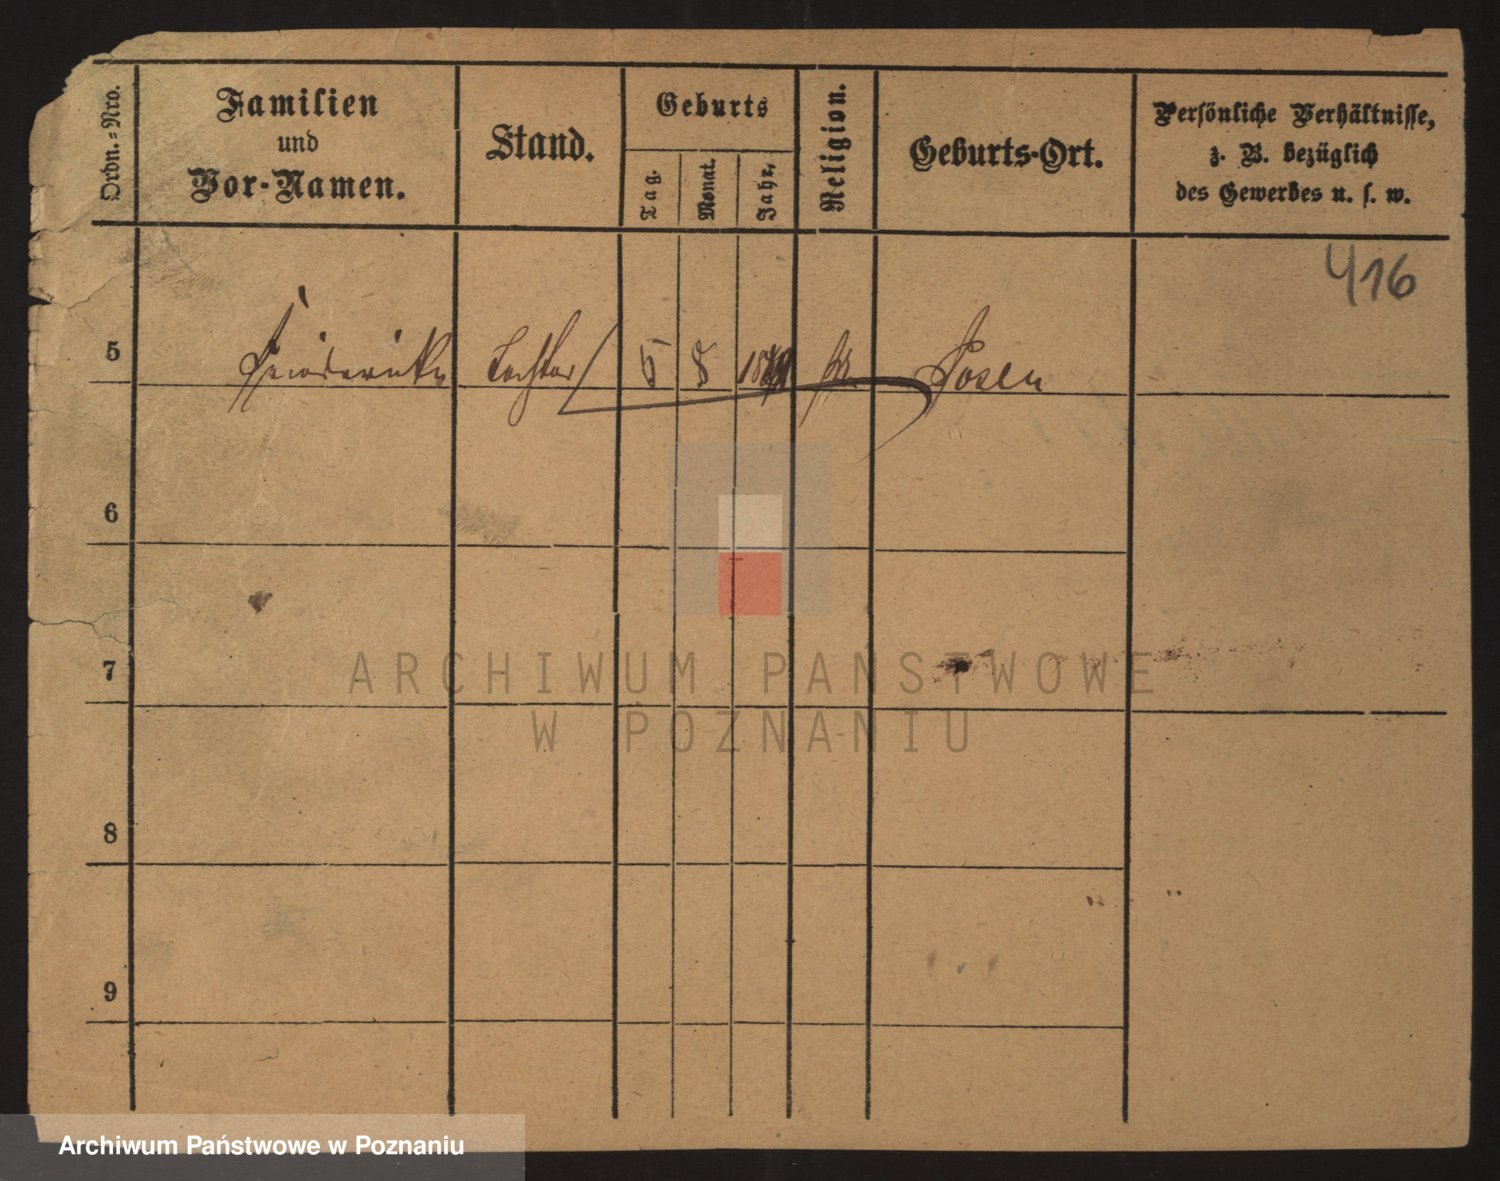 Ordn.=Nro.
Familien
und
Vor-Namen.
Stand.
Geburts
Tag.
Monat.
Jahr.
Religion.
Geburts-Ort.
Persönliche Verhältnisse,
z. B. bezüglich
des Gewerbes u. s. w.
416
5 Friederike Tochter 5 8 Posen
6
7
8
9
ARCHIWUM PAŃSTWOWE
W POZNANIU
Archiwum Państwowe w Poznaniu